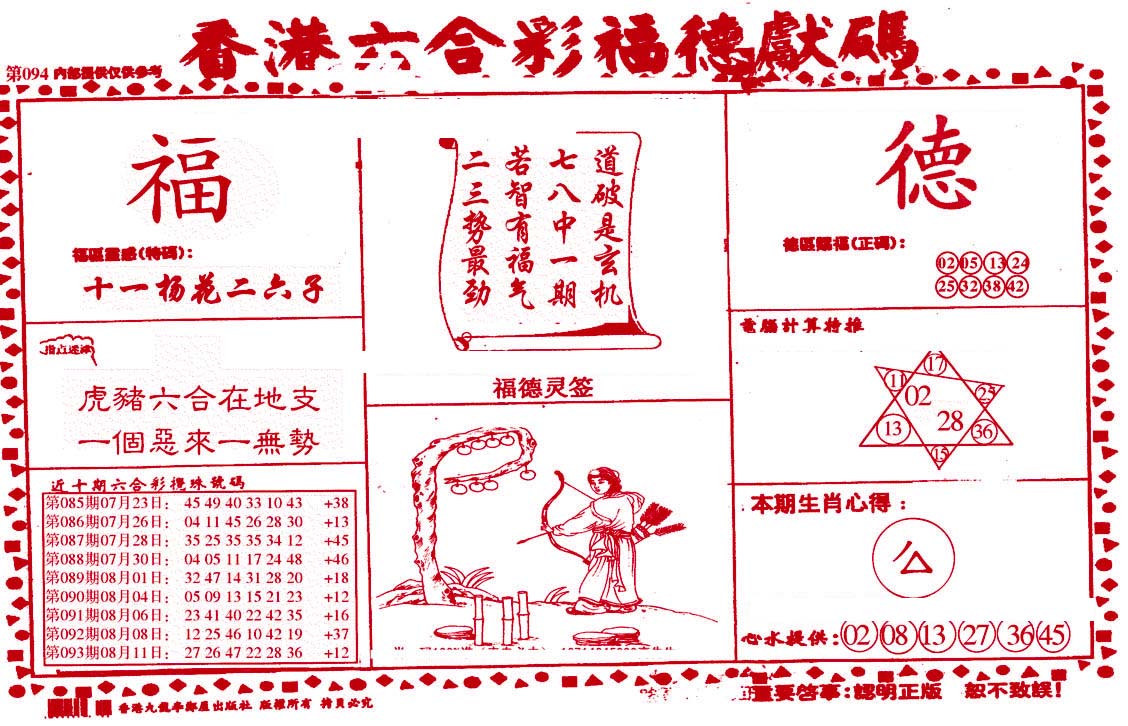 香港六合彩福德獻碼
第094 内部提供仅供参考
福
福區靈感(特碼):
十一杨花二六子
指点迷津
虎豬六合在地支
一個惡來一無勢
近十期六合彩攪珠號碼
第085期07月23日: 45 49 40 33 10 43 +38
第086期07月26日: 04 11 45 26 28 30 +13
第087期07月28日: 35 25 35 35 34 12 +45
第088期07月30日: 04 05 11 17 24 48 +46
第089期08月01日: 32 47 14 31 28 20 +18
第090期08月04日: 05 09 13 15 21 23 +12
第091期08月06日: 23 41 40 22 42 35 +16
第092期08月08日: 12 25 46 10 42 19 +37
第093期08月11日: 27 26 47 22 28 36 +12
道破是玄机
七八中一期
若智有福气
二三势最劲
福德灵签
德
德區賜福(正碼):
02 05 13 24
25 32 38 42
電腦計算特推
17
11
02
25
13
28
36
15
本期生肖心得:
心水提供: 02 08 13 27 36 45
重要啓事:認明正版 恕不致誤!
香港九龍 出版社 版權所有 拷貝必究